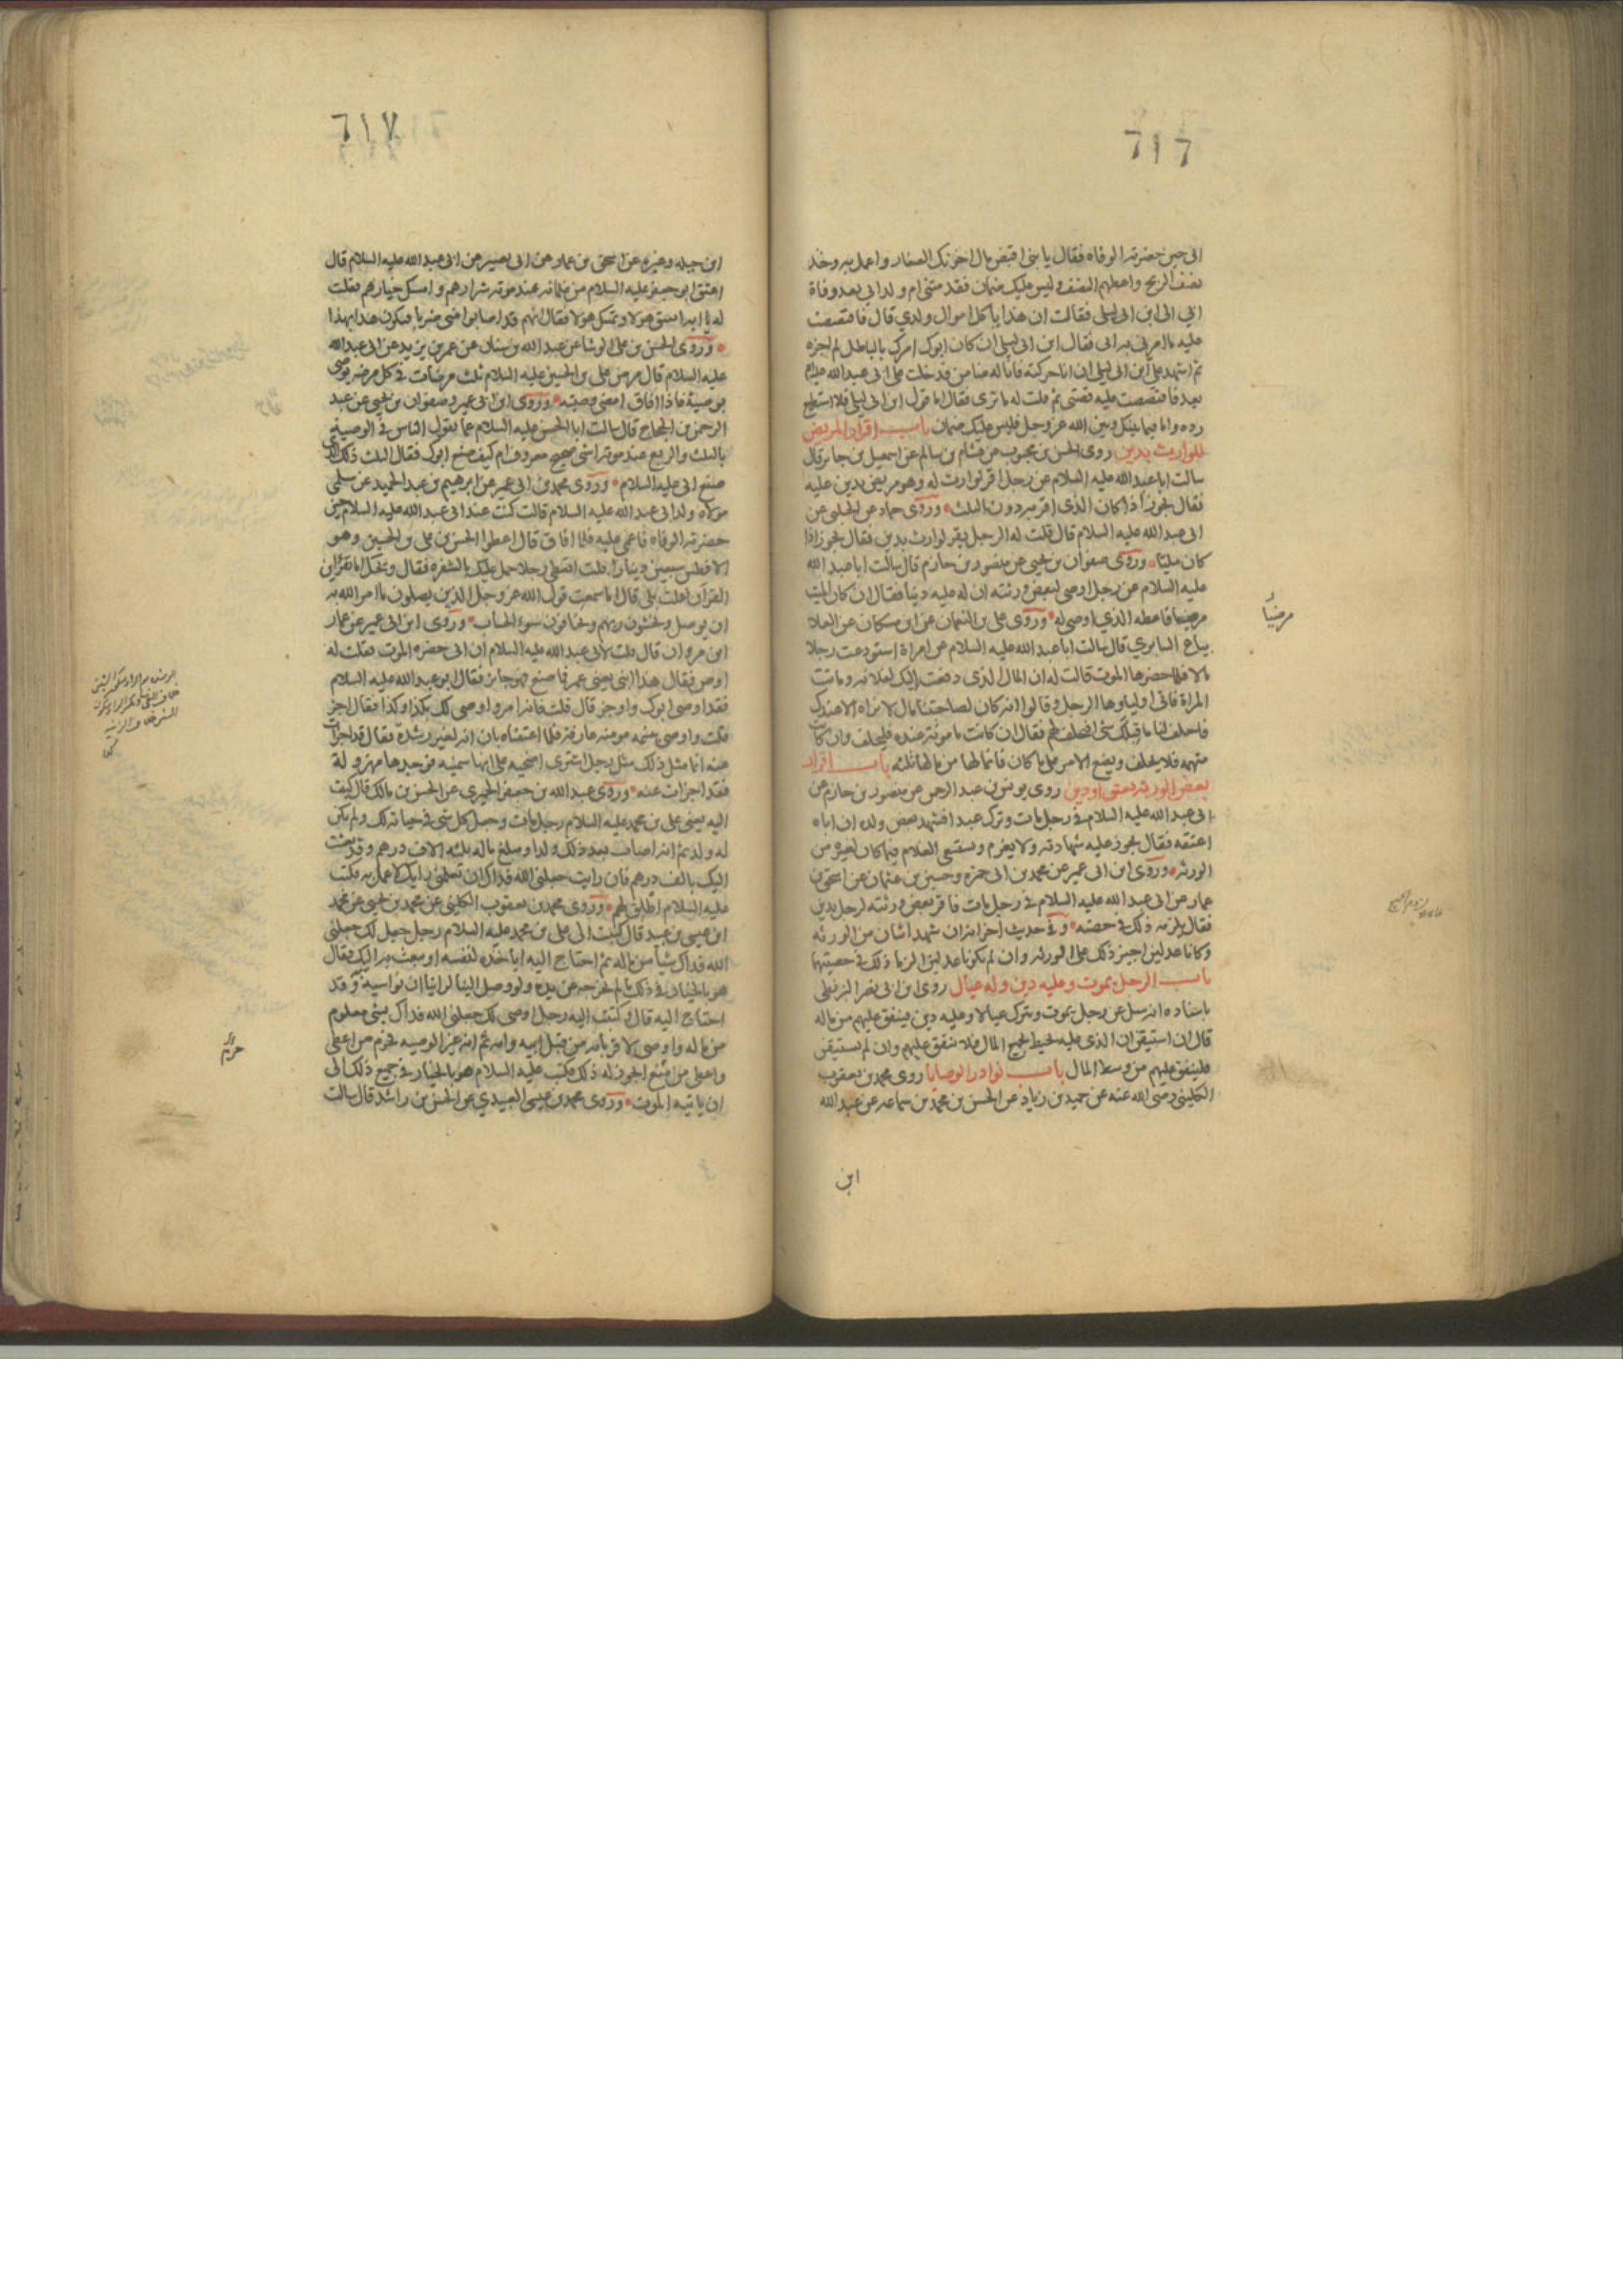 ٦١٦
ابى حين حضرته الوفاة فقال يا بنى اقبض مال اخوتك الصغار واعمل به وخذ
نصف الربح واعطهم النصف وليس عليك ضمان فقدمتنى ام ولد ابى بعد وفاة
ابي الى ابن ابى ليلى فقالت ان هذا ياكل اموال ولدي قال فاقتصصت
عليه ما امرنى به ابى فقال ابن ابى ليلى ان كان ابوك امرك بالباطل لم اجزه
ثم اشهد على ابن ابى ليلى ان انا حركته فانا له ضامن فدخلت على ابى عبد الله عليه السلام
بعد فاقتصصت عليه قصتى ثم قلت له ما ترى فقال اما قول ابن ابى ليلى فلا استطيع
رده واما فيما بينك وبين الله عز وجل فليس عليك ضمان باب اقرار المريض
للوارث بدين روى الحسن بن محبوب عن هشام بن سالم عن اسمعيل بن جابر قال
سالت ابا عبد الله عليه السلام عن رجل اقر لوارث له وهو مريض بدين عليه
فقال يجوز اذا كان الذى اقر به دون الثلث وروى حماد عن الحلبى عن
ابى عبد الله عليه السلام قال قلت له الرجل يقر لوارث بدين فقال يجوز اذا
كان مليئا وروى صفوان بن يحيى عن منصور بن حازم قال سالت ابا عبد الله
عليه السلام عن رجل اوصى لبعض ورثته ان له عليه دينا فقال ان كان الميت
مرضيا فاعطه الذي اوصى له وروى على بن النعمان عن ابن مسكان عن العلا
بياع السابري قال سالت ابا عبد الله عليه السلام عن امراة استودعت رجلا
مالا فلما حضرها الموت قالت له ان المال الذى دفعته اليك لفلانه وماتت
المراة فاتى اولياوها الرجل وقالوا انه كان لصاحبتنا مال لا نراه الا عندك
فاحلف لنا ما قبلك شئ افيحلف لهم فقال ان كانت مامونة عنده فليحلف وان كانت
متهمه فلا يحلف ويضع الامر على ما كان فانما لها من مالها ثلثه باب اقرار
بعض الورثه بعتق او دين روى يونس بن عبد الرحمن عن منصور بن حازم عن
ابى عبد الله عليه السلام فى رجل مات وترك عبدا فشهد بعض ولده ان اباه
اعتقه فقال يجوز عليه شهادته ولا يغرم ويستسعى الغلام فيما كان لغيره من
الورثه وروى ابن ابى عمير عن محمد بن ابى حمزه وحسين بن عثمان عن اسحق بن
عمار عن ابى عبد الله عليه السلام فى رجل مات فاقر بعض ورثته لرجل بدين
فقال يلزمه ذلك فى حصته وفى حديث اخر انه ان شهد اثنان من الورثه
وكانا عدلين اجيز ذلك على الورثه وان لم يكونا عدلين الزما ذلك فى حصتهما
باب الرجل يموت وعليه دين وله عيال روى ابن ابى نصر البزنطى
باسناده انه سئل عن رجل يموت ويترك عيالا وعليه دين اينفق عليهم من ماله
قال ان استيقن ان الذى عليه يحيط بجميع المال فلا ينفق عليهم وان لم يستيقن
فلينفق عليهم من وسط المال باب نوادر الوصايا روى محمد بن يعقوب
الكلينى رضى الله عنه عن حميد بن زياد عن الحسن بن محمد بن سماعه عن عبد الله
ابن
مرضياً
٦١٧
ابن جبله وغيره عن اسحق بن عمار عن ابى بصير عن ابى عبد الله عليه السلام قال
اعتق ابو جعفر عليه السلام من غلمانه عند موته شرارهم وامسك خيارهم فقلت
له يا ابه تعتق هولا وتمسك هولا فقال انهم قد اصابوا منى ضربا فيكون هذا بهذا
وروى الحسن بن على الوشا عن عبد الله بن سنان عن عمر بن يزيد عن ابى عبد الله
عليه السلام قال مرض على بن الحسين عليه السلام ثلث مرضات فى كل مرضه يوصى
بوصية فاذا افاق امضى وصيته وروى ابن ابى عمير وصفوان بن يحيى عن عبد
الرحمن بن الحجاج قال سالت ابا الحسن عليه السلام عما يقول الناس فى الوصيه
بالثلث والربع عند موته اشئ صحيح معروف ام كيف صنع ابوك فقال الثلث ذلك الذى
صنع ابى عليه السلام وروى محمد بن ابى عمير عن ابرهيم بن عبد الحميد عن سلمى
مولاه ولد ابى عبد الله عليه السلام قالت كنت عند ابى عبد الله عليه السلام حين
حضرته الوفاه فاغمى عليه فلما افاق قال اعطوا الحسن بن على بن الحسين وهو
الافطس سبعين دينارا قلت اتعطى رجلا حمل عليك بالشفره فقال ويحك اما تقرأين
القرآن قلت بلى قال اما سمعت قول الله عز وجل الذين يصلون ما امر الله به
ان يوصل ويخشون ربهم ويخافون سوء الحساب وروى ابن ابى عمير عن عمار
ابن مروان قال قلت لابى عبد الله عليه السلام ان ابى حضره الموت فقلت له
اوص فقال هذا ابنى يعنى عمر فما صنع فهو جايز فقال ابو عبد الله عليه السلام
فقد اوصى ابوك واوجز قال قلت فانه امر واوصى لك بكذا وكذا فقال اجز
قلت واوصى بنسمه مومنه عارفه فلما اعتقناه بان انه لغير رشدة فقال قد اجزات
عنه انما مثل ذلك مثل رجل اشترى اضحيه على انها سمينه فوجدها مهزولة
فقد اجزات عنه وروى عبد الله بن جعفر الحميرى عن الحسن بن مالك قال كتبت
اليه يعنى على بن محمد عليه السلام رجل مات وجعل كل شئ فى حياته لك ولم يكن
له ولد ثم انه اصاب بعد ذلك ولدا ومبلغ ماله ثلثه الاف درهم وقد بعثت
اليك بالف درهم فان رايت جعلنى الله فداك ان تعلمنى رايك لاعمل به فكتب
عليه السلام اطلق لهم وروى محمد بن يعقوب الكلينى عن محمد بن يحيى عن محمد
ابن عيسى بن عبيد قال كتبت الى على بن محمد عليه السلام رجل جعل لك جعلنى
الله فداك شيأ من ماله ثم احتاج اليه اياخذه لنفسه او يبعث به اليك فقال
هو بالخيار فى ذلك ما لم يخرجه عن يده ولو وصل الينا لراينا ان نواسيه وقد
احتاج اليه قال وكتبت اليه رجل اوصى لك جعلنى الله فداك بشئ معلوم
من ماله واوصى لاقربائه من قبل ابيه وامه ثم انه غير الوصيه فحرم من اعطى
واعطى من منع ايجوز له ذلك فكتب عليه السلام هو بالخيار فى جميع ذلك الى
ان ياتيه الموت وروى محمد بن عيسى العبيدي عن الحسن بن راشد قال سالت